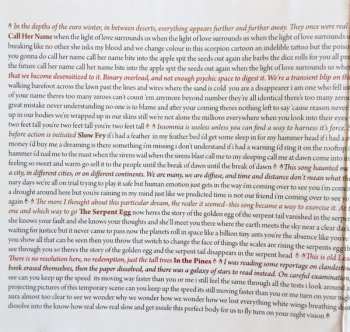 In the depths of the euro winter, in between deserts, everything appears further and further away. They once were real
Call Her Name when the light of love surrounds us when the light of love surrounds us when the light of love surrounds u
breaking like no other she inks my blood and we change colour in this scorpion cartoon an indelible tattoo but the poiso
you gonna do gold her name call her name bite into the apple spit the seeds out again she burbs the dice rolls for you all pre
the future call her name call her name bite into the apple spit the seeds out again when the light of love surrounds us wh
that we become desensitized to it. Binary overload, and not enough psychic space to digest it. We're a transient blip on the
walking barefoot across the lawn past the lines and wires where the sand is cold you are a disappearer i am one who fell
of your name theres too many zeroes can't count im anymore beyond number they're all identical there's too many zeroe
great mistake never understanding no one is to blame and after your coming theres nothing left to say cause reason never
up in our bodies we're wrapped up in our skins still we're not alone the millions everywhere when you look into their eyes
two feet tall you're two feet tall you're two feet tall Insomnia is useless unless you can find a way to harness it's force,
before action is initiated Slow Fry if i had a feather in my feather bed i'd get some sleep for my hammer head if i had a
money i'd buy me a dreaming is there something i'm missing i don't understand if i had a warning i'd sing it on the roofto
hammer i'd nail me to the mast when the sirens wail when the sirens blue call me to my sleeping call me at dawn come into
feeling so sweet and warm go sell it to the people until the break of dawn until the break of dawn This song haunted me
a city, in different cities, or on different continents. We are many, we are diffuse, and time and distance don't mean what the
rary days we're all on trial trying to play it safe but human emotion just gets in the way im coming over to see you i'm com
a drought around here but you're raining in my mind just like we predicted time is not our friend i'm coming over to see yo
again The more I thought about this particular dream, the realer it seemed–this song became a way to exorcise it. At
one and which way to go The Serpent Egg now heres the story of the golden egg of the serpent tail vanished in the serpe
she knows your fault and she knows your thoughts and she'll meet you there where the earth meets the sky near a clear da
waiting for justice but it never came to pass now the planets roll in space like a billion tiny ants you're the absence like you're
you show all that can be seen then you throw that switch to change the face of things the scales are rising the serpents egg is
see through you so theres the story of the golden egg and the serpent tail disappears in the serpent head This is old Lea
There is no resolution here, no redemption, just the tall trees In the Pines I was reading some reportage on clandestine
book erased themselves, then the paper dissolved, and there was a galaxy of stars to read instead. On careful examination
see can you keep up the speed its moving way faster than you or me i still feel the same through all the tests i look around a
projecting pictures of this temporary scene can you keep up the speed its still moving faster than you or me turn on your nigh
ures almost too clear to see we wonder why we wonder how we wonder how we lost everything white wings breathing abou
dissolve into the know how real slow real slow and get aside this perfect body for us to fly turn on your night vision